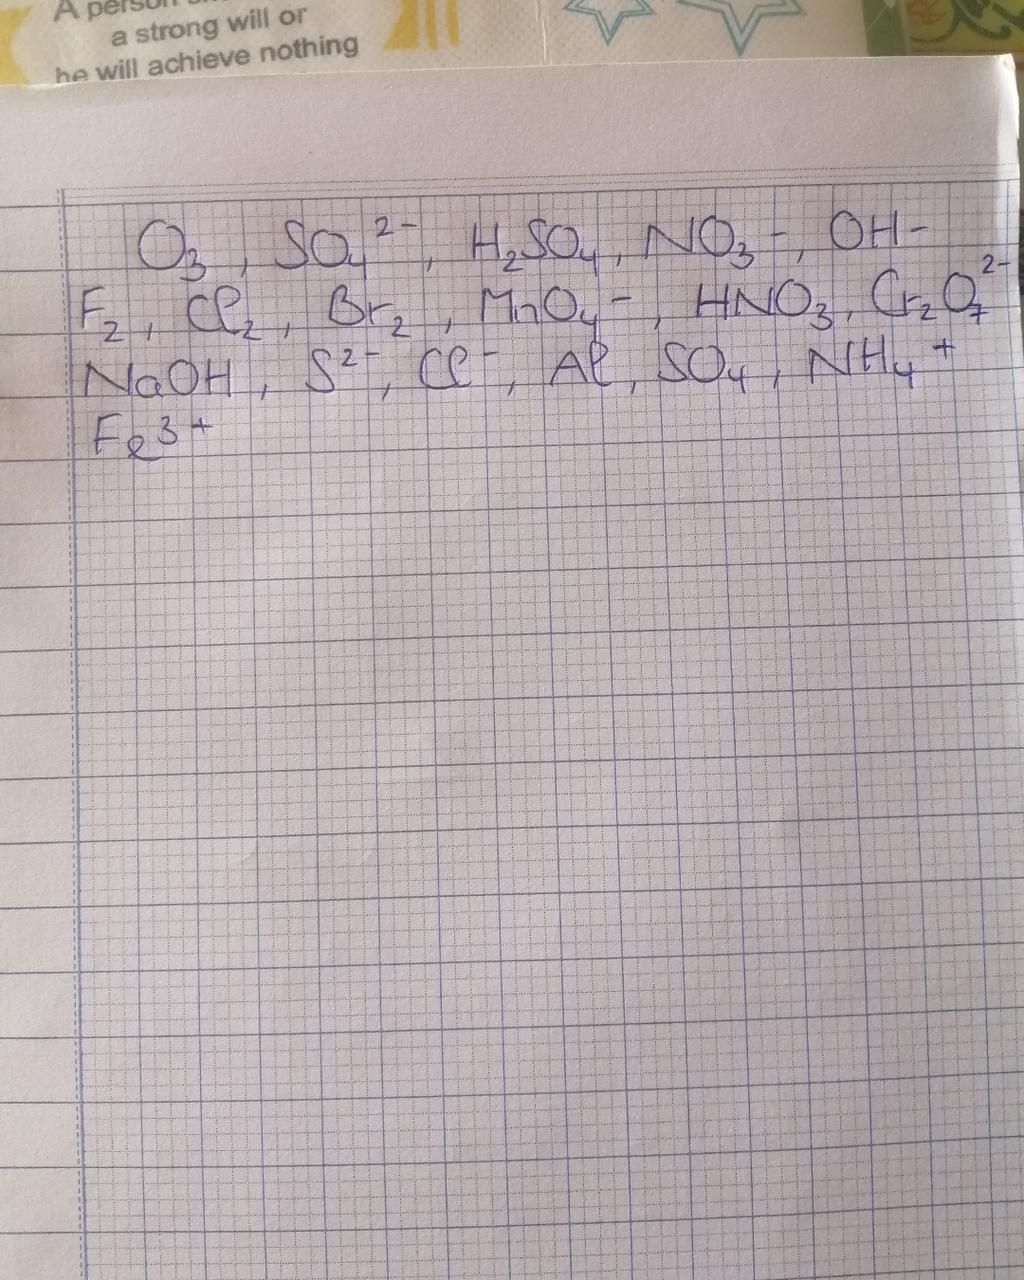 A person
a strong will or
he will achieve nothing
O₃, SO₄²⁻, H₂SO₄, NO₃⁻, OH⁻
F₂, Cl₂, Br₂, MnO₄⁻, HNO₃, Cr₂O₇²⁻
NaOH, S²⁻, Cl⁻, Al, SO₄, NH₄⁺
Fe³⁺